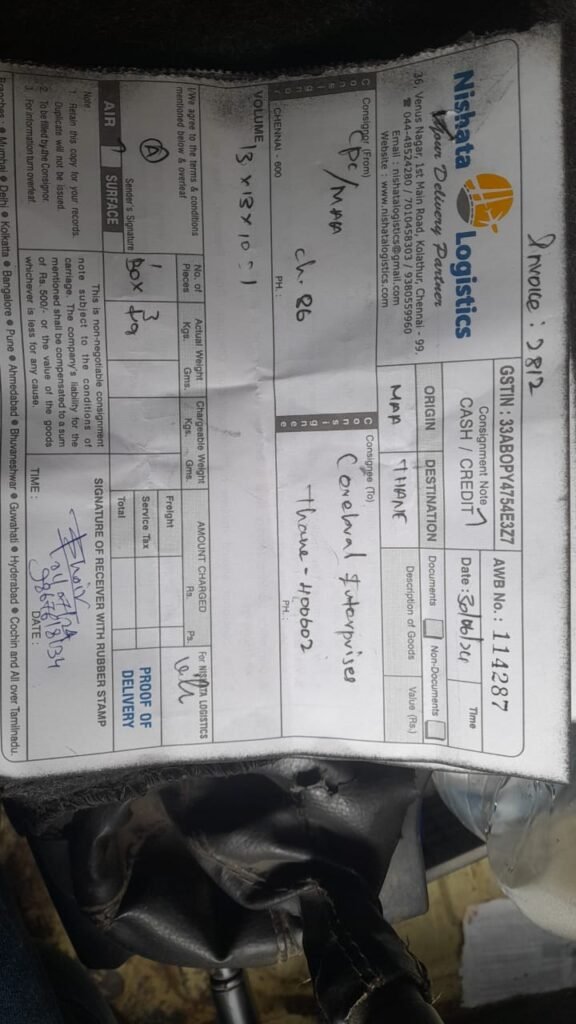 Invoice: 2812
Nishata Logistics
Your Delivery Partner
36, Venus Nagar, 1st Main Road, Kolathur, Chennai - 99.
☎ 044-48524280 / 7010458303 / 9380559960
Email : nishatalogistics@gmail.com
Website : www.nishatalogistics.com
GSTIN : 33ABOPY4754E3Z7
AWB No.: 114287
Consignment Note
CASH / CREDIT
Date : 30/06/24
Time
ORIGIN
DESTINATION
Documents
Non-Documents
MAA
THANE
Description of Goods
Value (Rs.)
Consignor
Consignor (From)
CPC/MAA
ch. 86
CHENNAI - 600
PH :
Consignee
Consignee (To)
Cerebral Enterprises
Thane - 400602
PH.:
VOLUME
13 x 13 x 10 - 1
I/We agree to the terms & conditions
mentioned below & overleaf
Sender's Signature
No. of
Pieces
Actual Weight
Kgs. Gms.
Chargeable Weight
Kgs. Gms.
AMOUNT CHARGED
Rs. Ps.
For NISHATA LOGISTICS
1
Box
3
kg
Freight
Service Tax
Total
PROOF OF
DELIVERY
AIR
SURFACE
Note :
1. Retain this copy for your records.
Duplicate will not be issued.
2. To be filled by the Consignor.
3. For information turn overleaf.
This is non-negotiable consignment
note subject to the conditions of
carriage. The company's liability for the
mentioned shall be compensated to a sum
of Rs. 500/- or the value of the goods
whichever is less for any cause.
SIGNATURE OF RECEIVER WITH RUBBER STAMP
TIME :
DATE :
Branches : ● Mumbai ● Delhi ● Kolkatta ● Bangalore ● Pune ● Ahmedabad ● Bhuvaneshwar ● Guwahati ● Hyderabad ● Cochin and All over Tamilnadu.